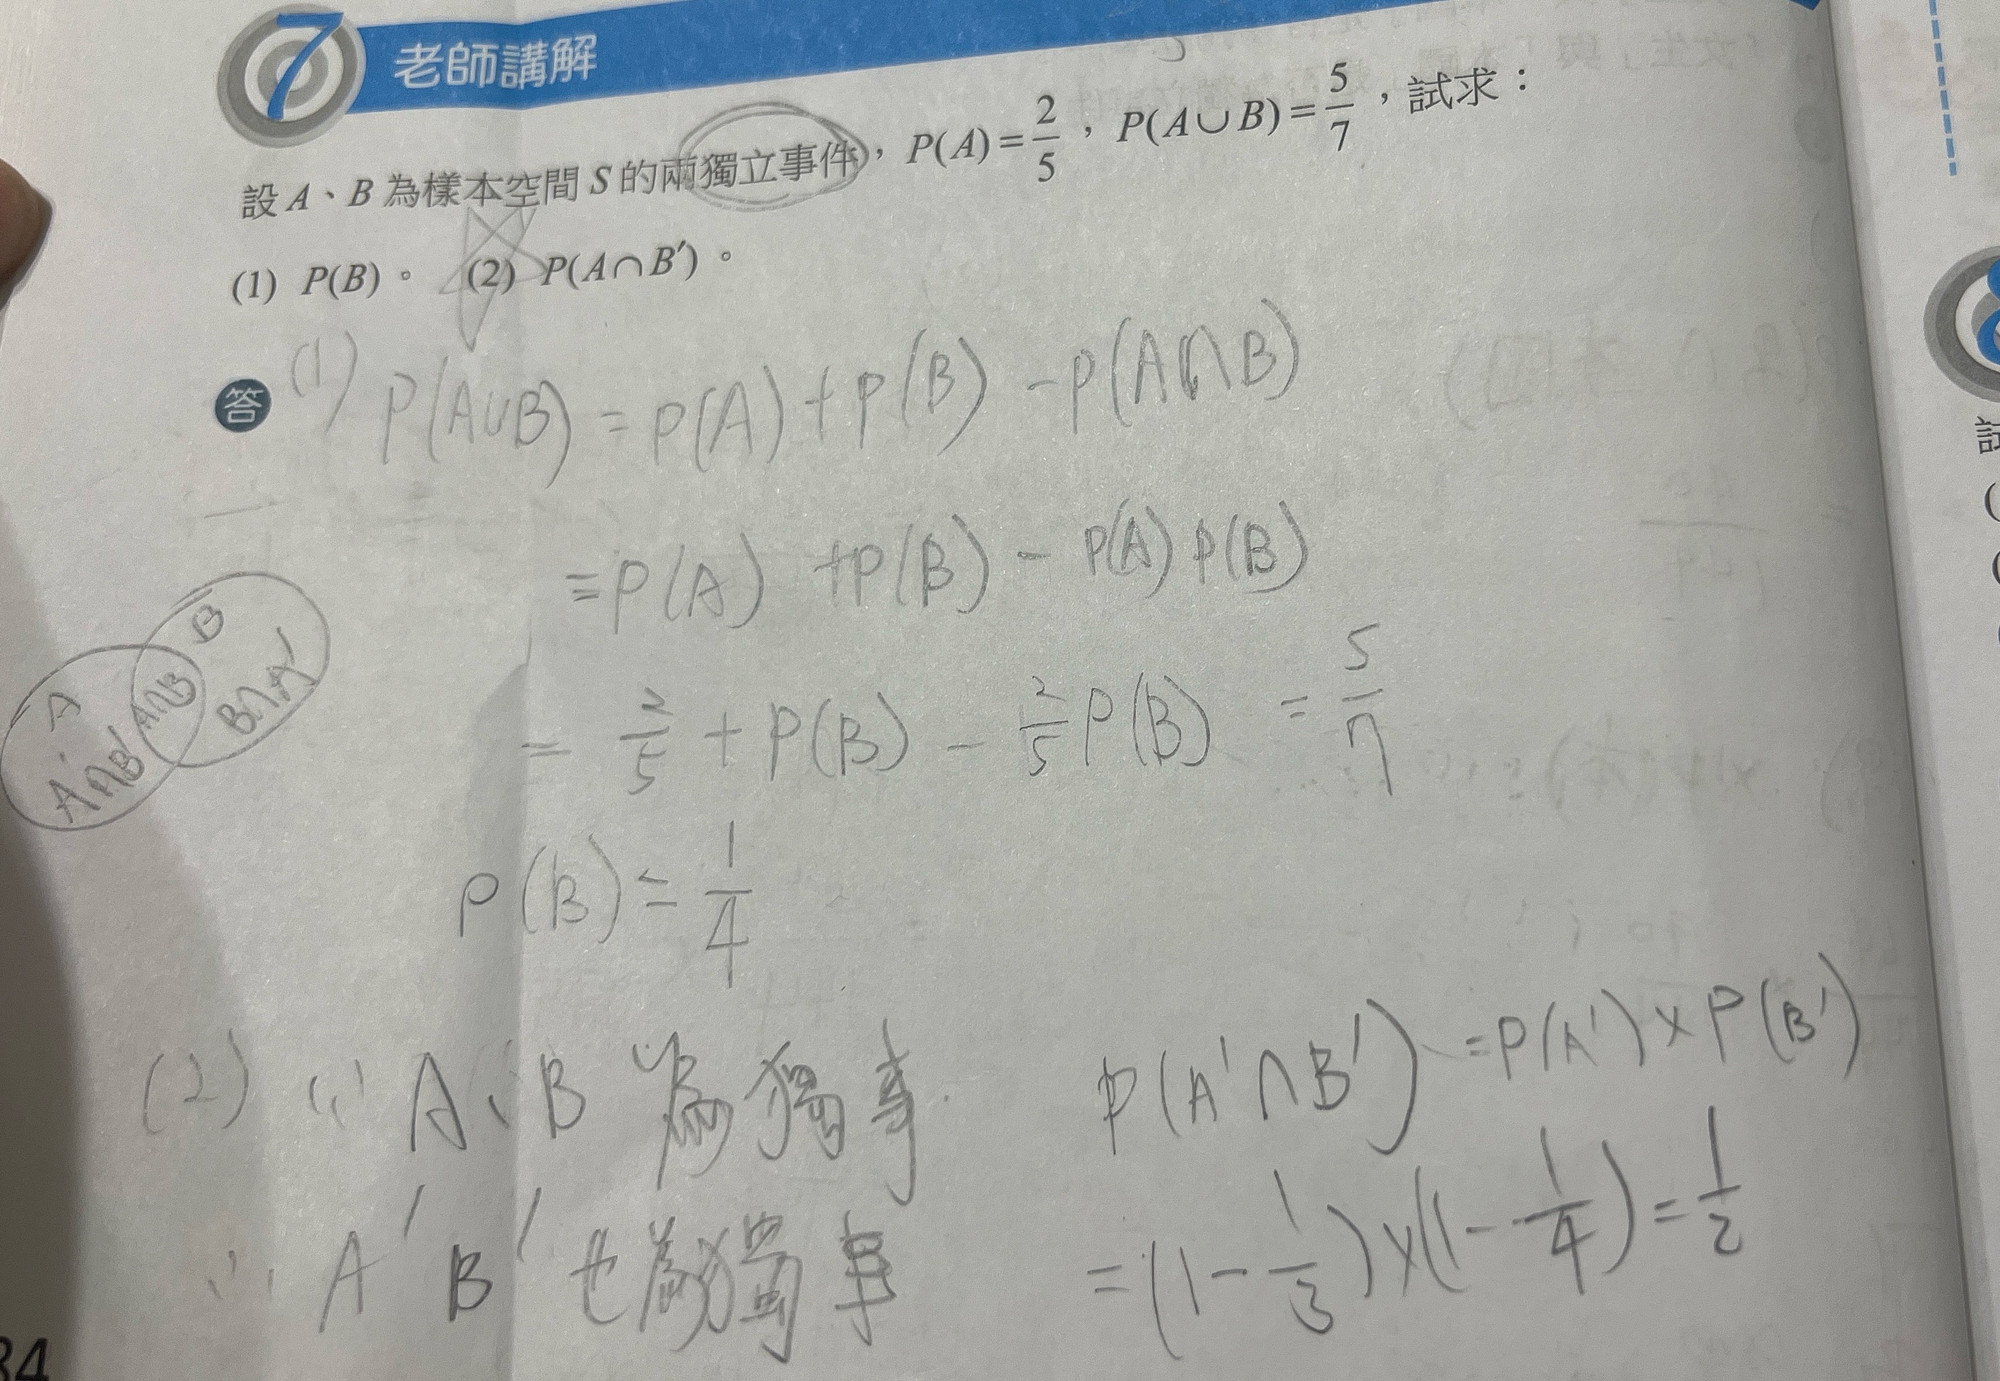 7 老師講解
設 A、B 為樣本空間 S 的兩獨立事件,P(A)=2/5,P(A∪B)=5/7,試求:
(1) P(B)。 (2) P(A∩B′)。
答 (1) P(A∪B) = P(A)+P(B) -P(A∩B)
=P(A) +P(B) - P(A) P(B)
= 2/5 + P(B) - 2/5 P(B) = 5/7
P(B) = 1/4
A
B
A∩B'
A∩B
B∩A'
(2) ∵ A、B 為獨事
∴ A' B' 也為獨事
P(A'∩B') =P(A')×P(B')
=(1-1/3)×(1-1/4)=1/2
34
試
(